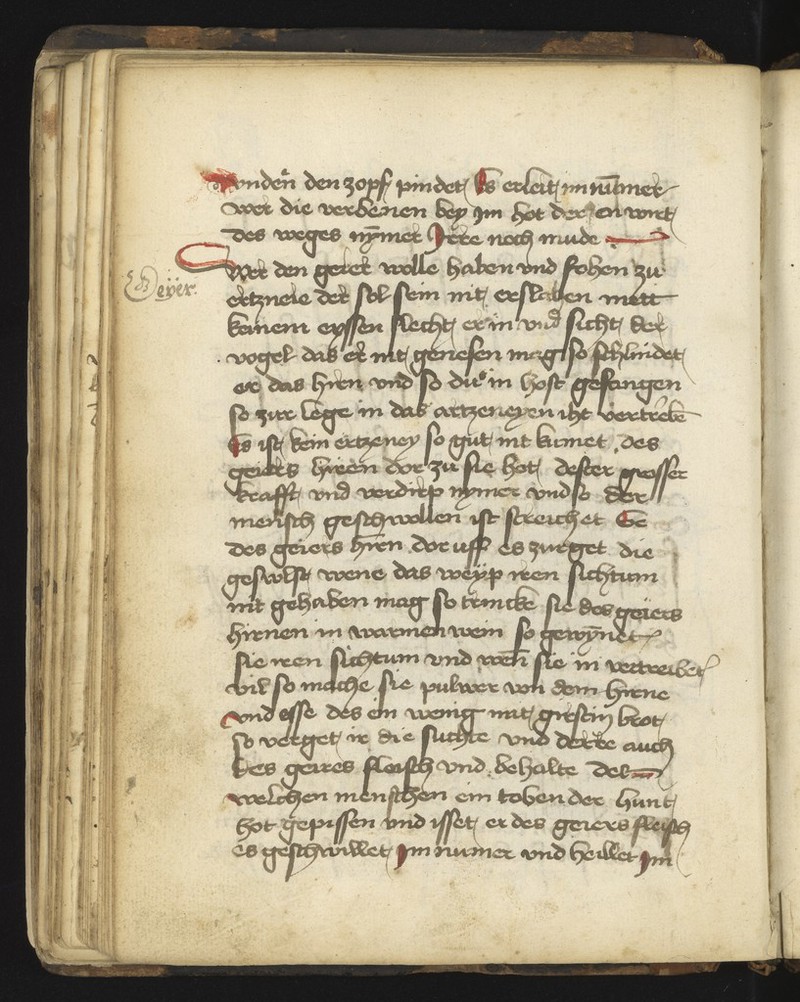 vnden den zopf pindet Es erleit im nu̅mer
wer die verbenen bey Im hot der en wirt
des weges ny̅mer Irre noch mude
Geÿer.
Wer den geier wolle haben vnd fohen zu
ertzneie der sol sein nit erslahen mitt
keinem eyssen slecht er in vnd sicht der
vogel das er nit genesen mag so schlindet
er das hirn vnd so du in host gefangen
so zur lege in das artzeneyen iht vertrebe̅
Es ist kein ertzeney so gut nit kumet des
geiers hiren dor zu sie hot dester grosser
krafft vnd verdirp nymer vnd so der
mensch geschwollen ist streichet Er
des geiers hirn dor uff es zurget die
geswlst wene das weÿp iren sichtum
nit gehaben mag so trincke sie des geiers
hirnen in warmen wein so gewÿnet
sie iren sichtum vnd wen̅ sie in vertreibet
vil so mache sie pulwer von dem hirne
vnd esse des ein wenig mit girstein brot
so verget ir die suchte vnd derre auch
des geires fleisch vnd behalte des
welchen menschen ein tobender hunt
hot gepissen vnd isset er des geiers fleisch
es geschwillet Im numer vnd heillet Im